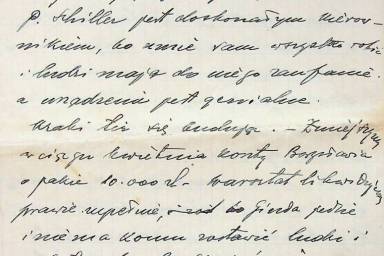 p. Schiller jest doskonałym kierow-
nikiem, bo umie sam wszystko robić
i ludzie mają do niego zaufanie
a urządzenie jest genialne.
się budują. – Zmniejszymy
w ciągu kwietnia konty
o jakie 10.000 zł – warsztat likwiduję
prawie zupełnie, bo Gierda jedzie
i niema komu zostawić ludzi i